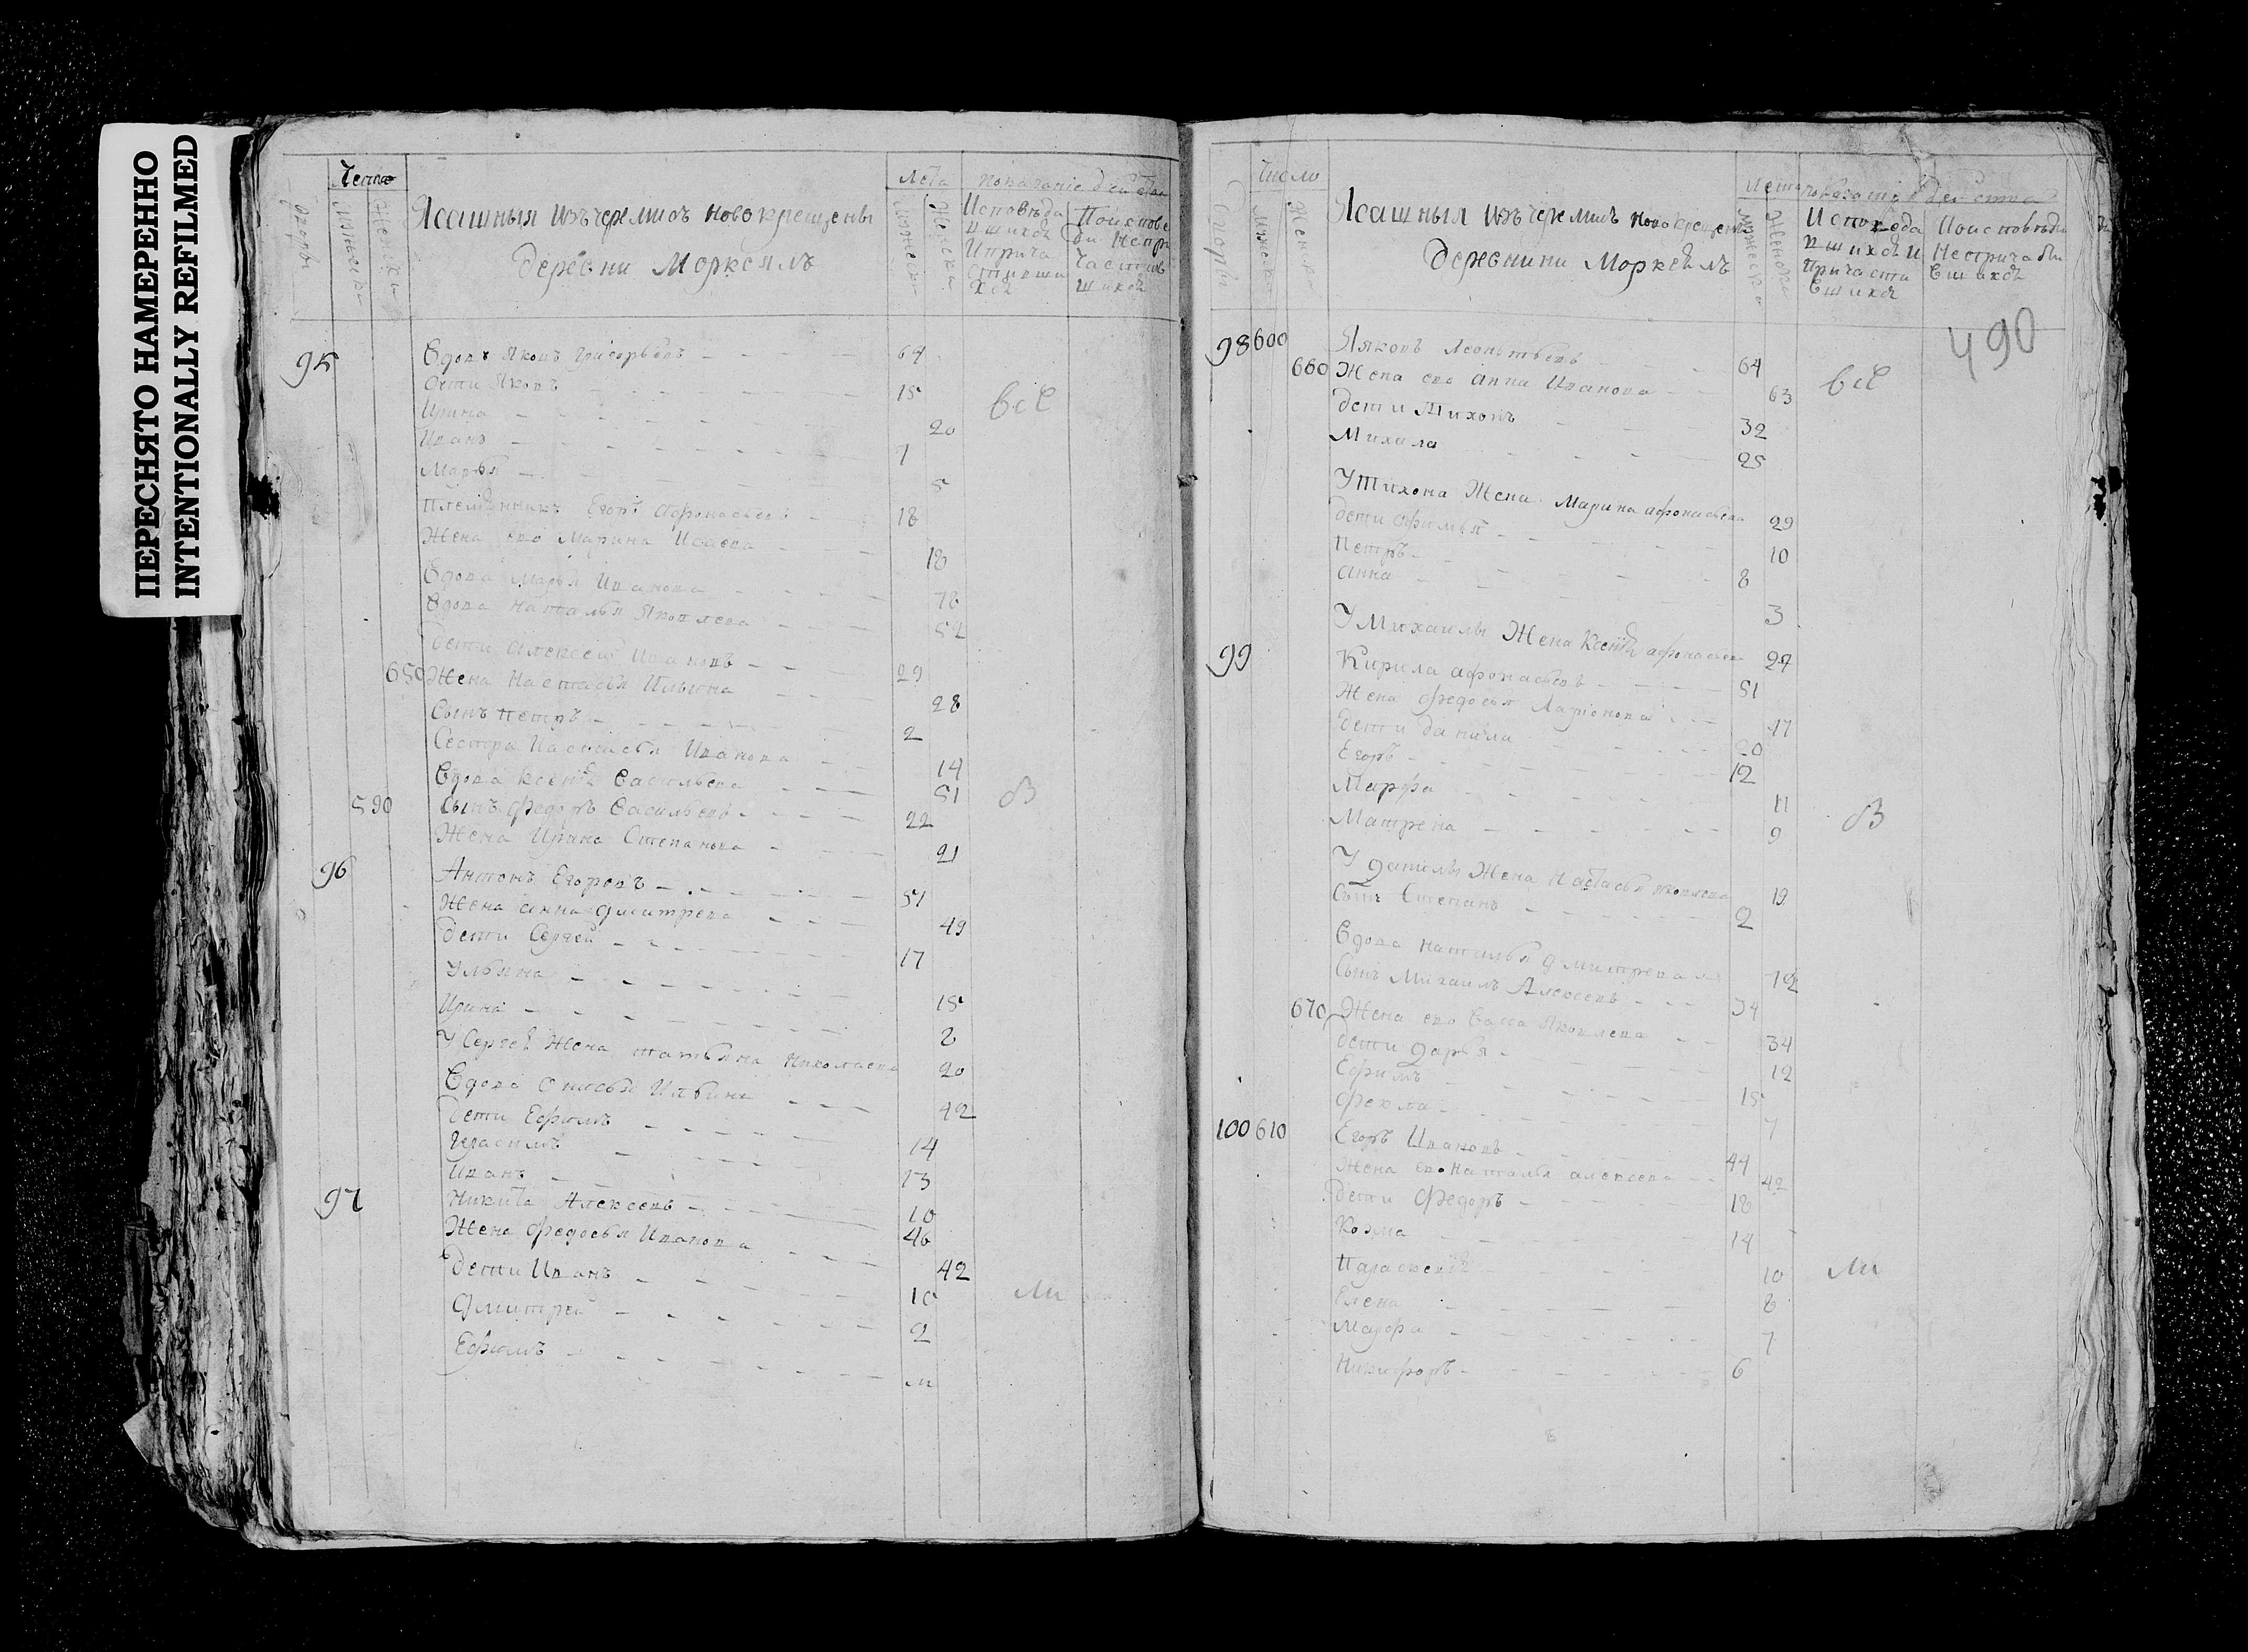 ПЕРЕСНЯТО НАМЕРЕННО
INTENTIONALLY REFILMED
Лета показание действа
дворы
мужеска
женска
Ясашныя изъ черемисъ новокрещены
деревни Моркеялъ
Исповеда
вшихся
и прича
стивши
хся
95 Вдовъ Яковъ Григорьевъ 64
дети Яковъ 15
всѣ
Ирина 20
Иванъ 7
Марья 5
племянникъ Егоръ Афонасьевъ 18
Жена ево Марина Исаева 18
Вдова Марья Иванова 78
Вдова Наталья Яковлева 52
дети Алексей Ивановъ 29
650 Жена Настасья Ильина 28
Сынъ Петръ 2
Сестра Настасья Иванова 14
Вдова Ксения Васильева 51
590 Сынъ Федоръ Васильевъ 22
Жена Ирина Степанова 21
96 Антонъ Егоровъ 57
Жена Анна Дмитрева 49
дети Сергей 17
Ульяна 15
Ирина 8
У Сергея Жена татьяна Николаева 20
Вдова Анисья Ильина 42
дети Ефимъ 14
Герасимъ 13
Иванъ 10
97 Никита Алексеевъ 46
Жена Федосья Иванова 42
дети Иванъ 10
Дмитрей 2
Ефимъ м
ли
Число Лета показание действа
дворы
мужеска
женска
Ясашныя изъ черемисъ новокрещены
деревнини Моркеялъ
Исповеда
вшихся и
причасти
вшихся
490
98 600 Яковъ Леонтьевъ 64
660 Жена ево Анна Иванова 63
всѣ
дети Тихонъ 32
Михаила 25
У Тихона Жена Марина афонасьева 29
дети Офимья 10
Петръ 8
Анна 3
У Михаилы Жена Ксения афонасьева 27
99 Кирила афонасьевъ 51
Жена Федосья Ларионова 47
дети данила 20
Егоръ 12
Марфа 11
Матрена 9
У Данилы Жена Настасья яковлева 19
Сынъ Степанъ 2
Вдова Наталья Дмитрева 72
Сынъ Михаилъ Алексеевъ 34
670 Жена ево Васса Яковлева 34
дети Дарья 12
Ефимъ 15
Фекла 7
100 610 Егоръ Ивановъ 44
Жена ево Наталья алексеева 42
дети Федоръ 18
Козма 14
Параскевия 10
ли
Елена 8
Марфа 7
Никифоръ 6